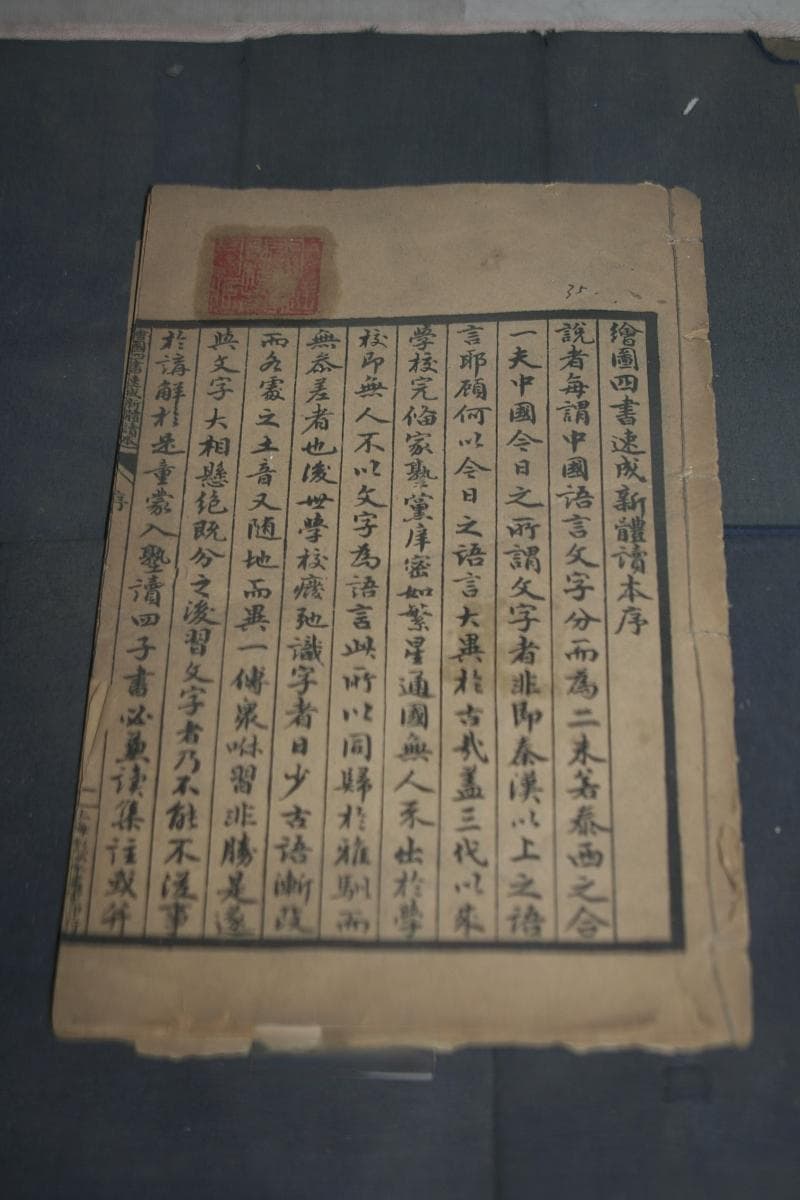 35
繪圖四書速成新體讀本序
說者每謂中國語言文字分而為二未若泰西之合
一夫中國今日之所謂文字者非即秦漢以上之語
言耶顧何以今日之語言大異於古哉蓋三代以來
學校完備家塾黨庠密如繁星通國無人不出於學
校即無人不以文字為語言此所以同歸於雅馴而
無參差者也後世學校癈弛識字者日少古語漸改
而各處之土音又随地而異一傅眾咻習非勝是遂
與文字大相懸絕既分之後習文字者乃不能不從事
於講解於是童蒙入塾讀四子書必兼读集註或并
繪圖四書速成新體讀本
序
一